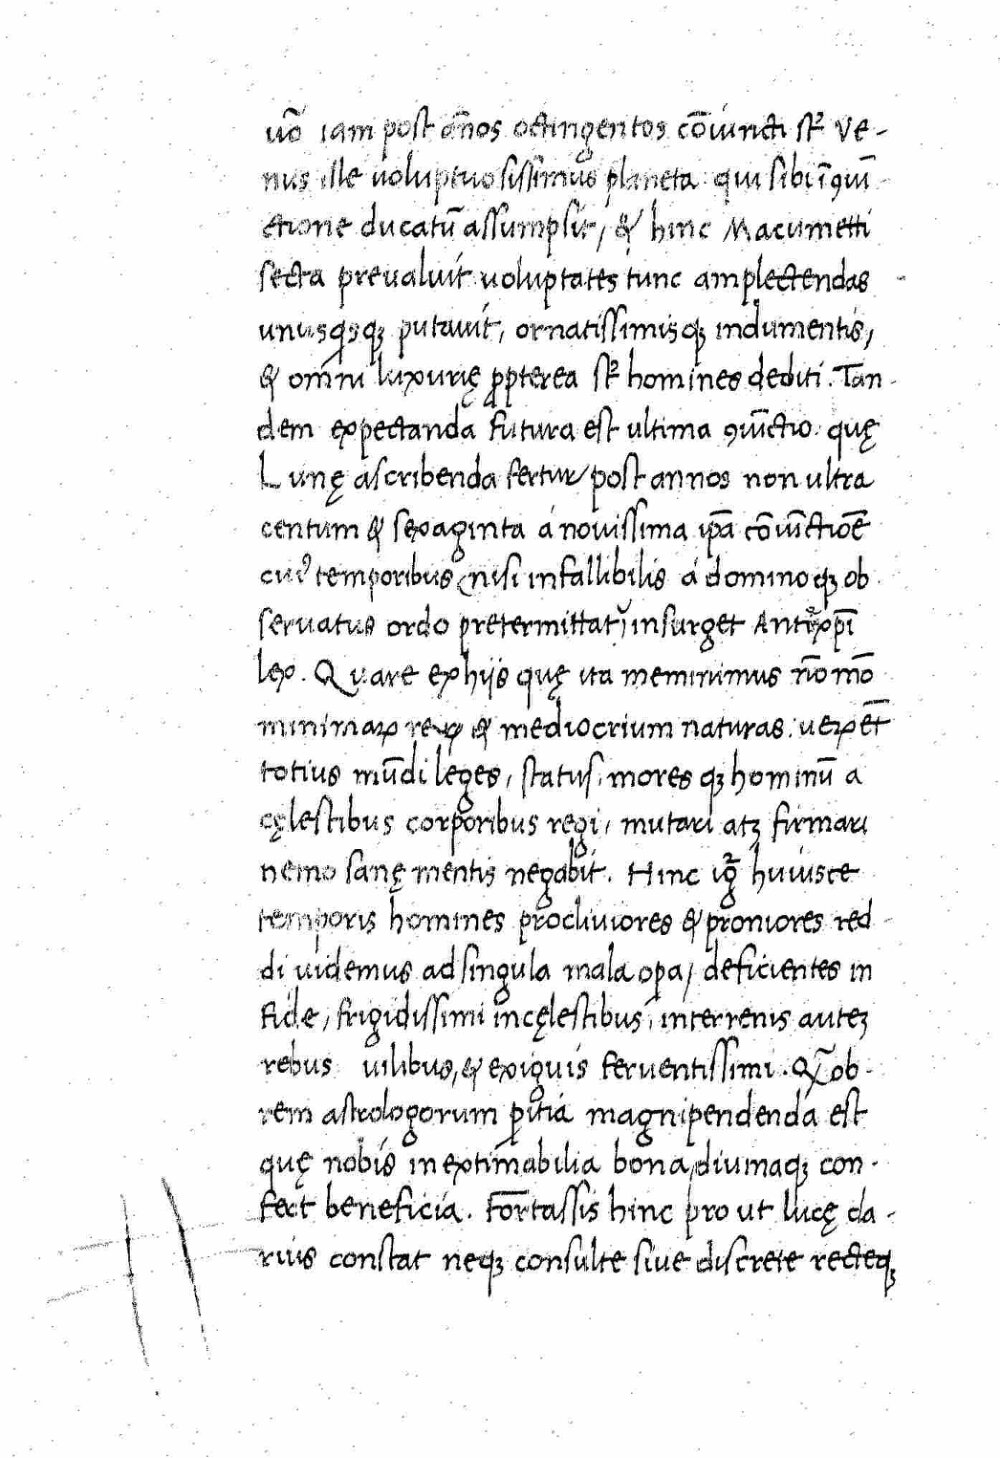 uō iam post an̄os octingentos cōiuncti st̄ Ve-
nus ille uoluptuosissimus planeta qui sibi ī ꝯiūn
ctione ducatū assumpsit, & hinc Macumetti
secta preualuit uoluptates tunc amplectendas
unusqsqꝫ putauit, ornatissimisqꝫ indumentis,
& omni luxurię ꝓpterea st̄ homines dediti. Tan-
dem expectanda futura est ultima ꝯiūctio quę
Lunę ascribenda fertur, post annos non ultra
centum & sexaginta á nouissima ip̄a cōiūctiōe
temporibus nisi infallibilis á dominoqꝫ ob
seruatus ordo pretermittat̄ insurget Antixp̄i
lex. Quare ex hijs quę ita meminimus nō mō
minimaꝝ reꝝ & mediocrium naturas. ueꝝ et̄
totius mūdi leges, status, mores qꝫ hominū a
cęlestibus corporibus regi, mutari atꝫ firmari
nemo sanę mentis negabit. Hinc igr̄ huiusce
temporis homines procliuiores & proniores red-
di uidemus ad singula mala opa, deficientes in
fide, frigidissimi in cęlestibus, in terrenis auteꝫ
rebus uilibus, & exiguis feruentissimi. Qāob-
rem astrologorum ꝑitia magnipendenda est
quę nobis inextimabilia bona, diuinaqꝫ con-
fert beneficia. Fortassis hinc pro ut lucę cla-
rius constat neqꝫ consulte siue discrete recteqꝫ